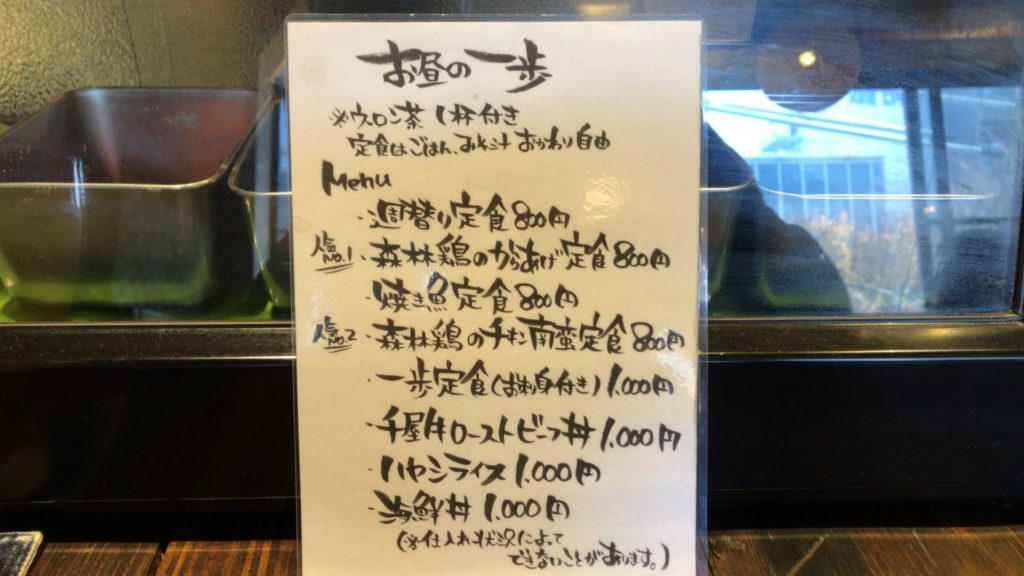 お昼の一歩
※ウーロン茶 1杯付き
定食はごはん、みそ汁 おかわり自由
Menu
・週替り定食 800円
人気No.1 ・森林鶏のからあげ定食 800円
・焼き魚定食 800円
人気No.2 ・森林鶏のチキン南蛮定食 800円
・一歩定食(お刺身付き) 1,000円
・千屋牛ローストビーフ丼 1,000円
・ハヤシライス 1,000円
・海鮮丼 1,000円
(※仕入れ状況によって
できないことがあります。)